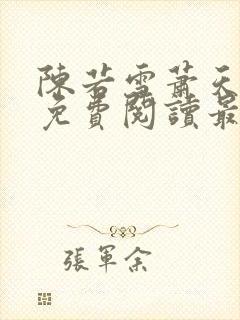 陳若雪蕭天
免費閱讀最
張軍余